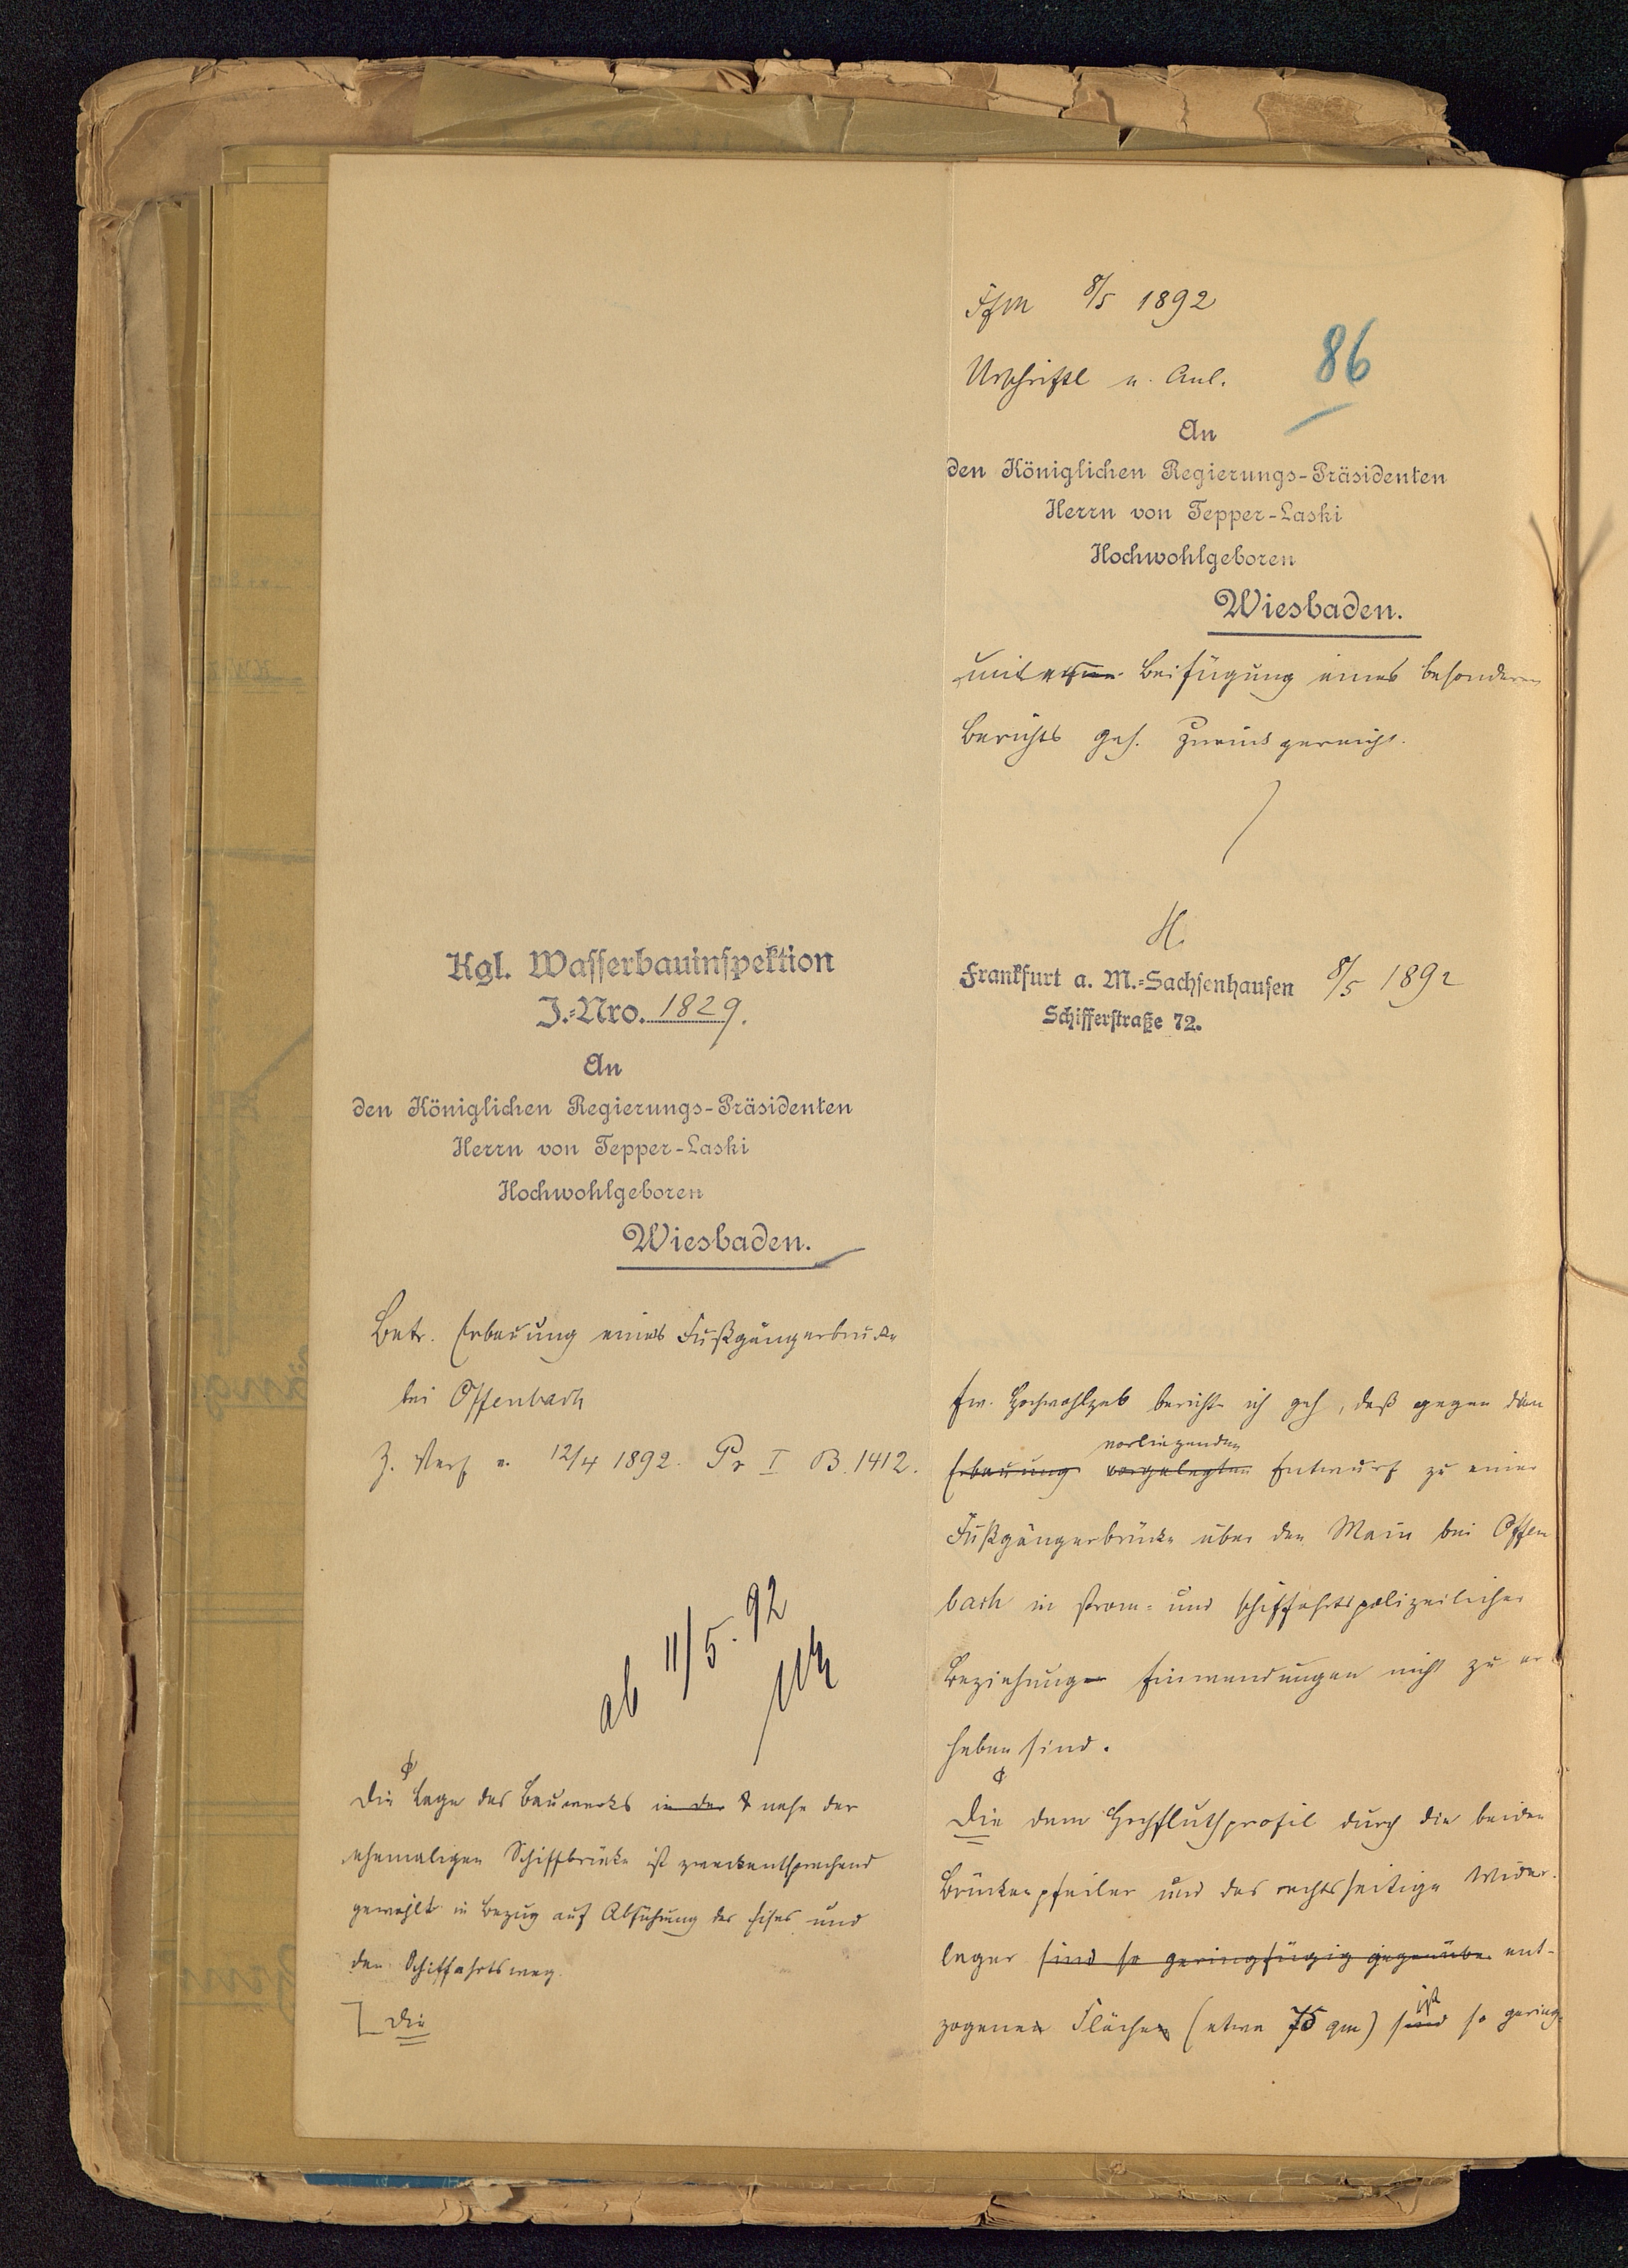 Ffm 8/5 1892
Urschriftl n. Anl.
86
An
den Königlichen Regierungs-Präsidenten
Herrn von Tepper-Laski
Hochwohlgeboren
Wiesbaden.
unter Beifügung eines besonderen
Berichts geh. zurückgereicht.
H.
Kgl. Wasserbauinspektion
J.-Nro. 1829.
An
den Königlichen Regierungs-Präsidenten
Herrn von Tepper-Laski
Hochwohlgeboren
Wiesbaden.
Betr. Erbauung einer Fußgängerbrücke
bei Offenbach
Z. Verf v. 12/4 1892. Pr I B. 1412.
ab 11/5. 92
Die Lage des Bauwerks in der nahe der
ehemaligen Schiffbrücke ist zweckentsprechend
gewählt in Bezug auf Abführung des Eises und
den Schiffahrtsweg.
Die
Frankfurt a. M.-Sachsenhausen 8/5 1892
Schifferstraße 72.
Ew. Hochwohlgeb berichte ich geh, daß gegen den
vorliegenden
Erbauung vorgelegten Entwurf zu einer
Fußgängerbrücke über den Main bei Offen
bach in strom- und schiffahrtspolizeilicher
Beziehung Einwendungen nicht zu er
heben sind.
Die dem Hochfluthprofil durch die beiden
Brückenpfeiler und das rechtsseitige Wider-
lager sind so geringfügig gegenüber ent-
ist
zogenen Flächen (etwa 75 qm) sind so gering-